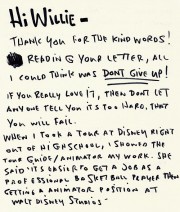 Hi Willie -
THANK YOU FOR THE KIND WORDS!
READING YOUR LETTER, ALL
I COULD THINK WAS DON'T GIVE UP!
IF YOU REALLY LOVE IT, THEN DON'T LET
ANY ONE TELL YOU IT'S TOO HARD, THAT
YOU WILL FAIL.
WHEN I TOOK A TOUR AT DISNEY RIGHT
OUT OF HIGHSCHOOL, I SHOWED THE
TOUR GUIDE/ANIMATOR MY WORK. SHE
SAID "IT'S EASIER TO GET A JOB AS A
PROFESSIONAL BASKETBALL PLAYER THEN
GETTING A ANIMATOR POSITION AT
WALT DISNEY STUDIOS-"